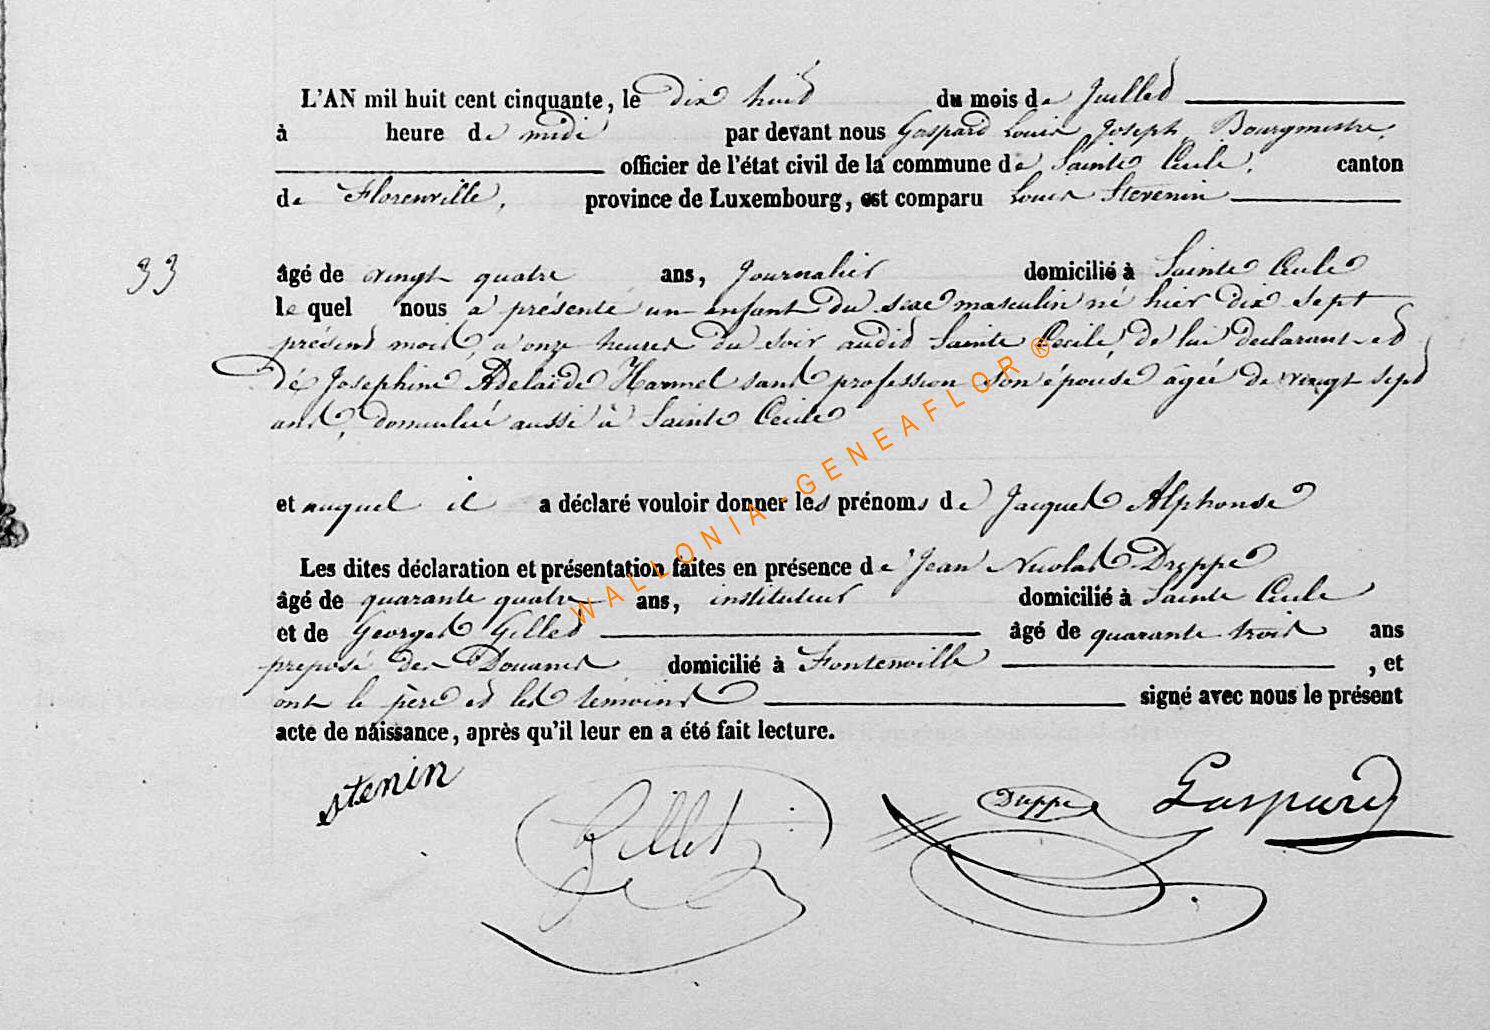 L'AN mil huit cent cinquante, le dix huit du mois de Juillet
à heure de midi par devant nous Gaspard Louis Joseph, Bourgmestre,
officier de l'état civil de la commune de Sainte Cécile, canton
de Florenville, province de Luxembourg, est comparu Louis Stevenin
33
âgé de vingt quatre ans, Journalier domicilié à Sainte Cécile
le quel nous a présenté un enfant du sexe masculin né hier dix sept
présent mois, à onze heures du soir audit Sainte Cécile, de lui déclarant et
de Josephine Adelaïde Hamel sans profession son épouse âgée de vingt sept
ans, domiciliée aussi à Sainte Cécile
et auquel il a déclaré vouloir donner les prénoms de Jacques Alphonse
Les dites déclaration et présentation faites en présence de Jean Nicolas Dreppe
âgé de quarante quatre ans, instituteur domicilié à Sainte Cécile
et de Georges Gillet âgé de quarante trois ans
préposé des Douanes domicilié à Fontenoille , et
ont le père et les témoins signé avec nous le présent
acte de naissance, après qu'il leur en a été fait lecture.
stenin Gillet Dreppe Gaspard
WALLONIA-GENEAFLOR®